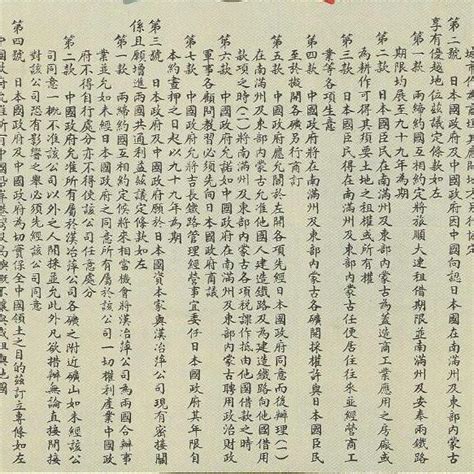 第二號　日本國政府及中國政府因中國向認日本國在南滿州及東部內蒙古
享有優越地位茲議定條款如左
第一款　兩締約國互相約定將旅順大連租借期限並南滿州及安奉兩鐵路
期限均展至九十九年為期
第二款　日本國臣民在南滿州及東部內蒙古為蓋造商工業應用之房廠或
為耕作可得其須要土地之租借權或所有權
第三款　日本國臣民得在南滿州及東部內蒙古任便居住往來並經營商工
業等各項生意
第四款　中國政府將在南滿州及東部內蒙古各礦開採權許與日本國臣民
至於擬開各礦另行商訂
第五款　中國政府應允關於左開各項先經日本國政府同意而後辦理(一)
在南滿州及東部內蒙古允准他國人建造鐵路或為建造鐵路向他國借用
款項之時(二)將南滿州及東部內蒙古各項稅課作抵由他國借款之時
第六款　中國政府允諾如中國政府在南滿州及東部內蒙古聘用政治財政
軍事各顧問教習必須先向日本國政府商議
第七款　中國政府允將吉長鐵路管理經營事宜委任日本國政府其年限自
本約畫押之日起以九十九年為期
第三號　日本國政府及中國政府願於日本國資本家與漢冶萍公司現有密接關
係且願增進兩國共通利益茲議定條款如左
第一款　兩締約國互相約定俟將來相當機會將漢冶萍公司為兩國合辦事
業並允如未經日本國政府之同意所有屬於該公司一切權利產業中國政
府不得自行處分亦不得使該公司任意處分
第二款　中國政府允准所有屬於漢冶萍公司各礦之附近礦山如未經該公
司同意一概不准該公司以外之人開採並允此外凡欲措辦無論直接間接
對該公司恐有影響之舉必須先經該公司同意
第四號　日本國政府及中國政府為切實保全中國領土之目的茲訂立專條如左